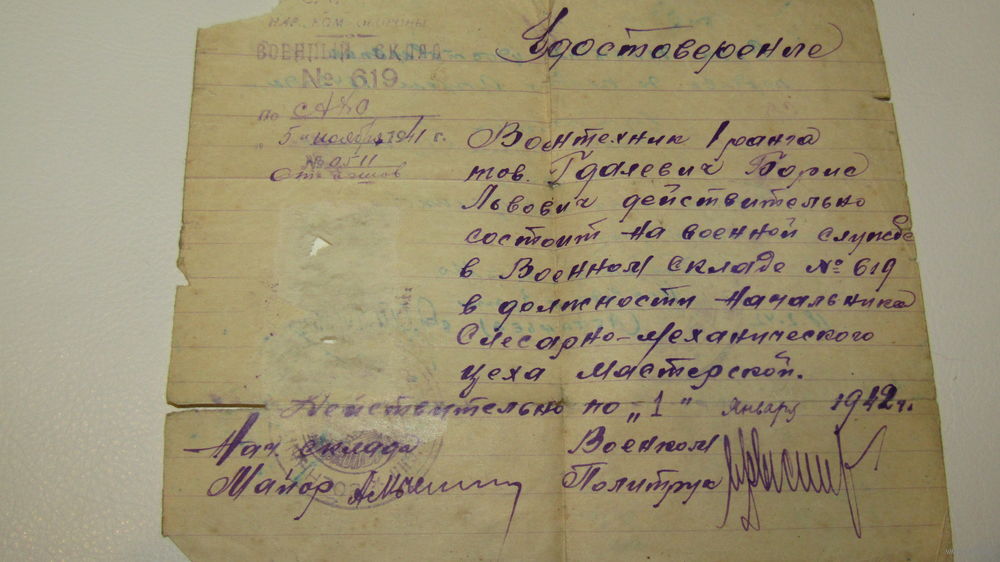 НАР. КОМ. ОБОРОНЫ
ВОЕННЫЙ СКЛАД
№ 619
По
5 " ноября 1941 г.
№ 0511
Удостоверение
Воентехник I ранга
тов. Гдалевич Борис
Львович действительно
состоит на военной службе
в Военном складе № 619
в должности Начальника
Слесарно-механического
цеха Мастерской.
Действительно по "1" январь 1942 г.
Нач. склада
Майор
Военком
Политрук